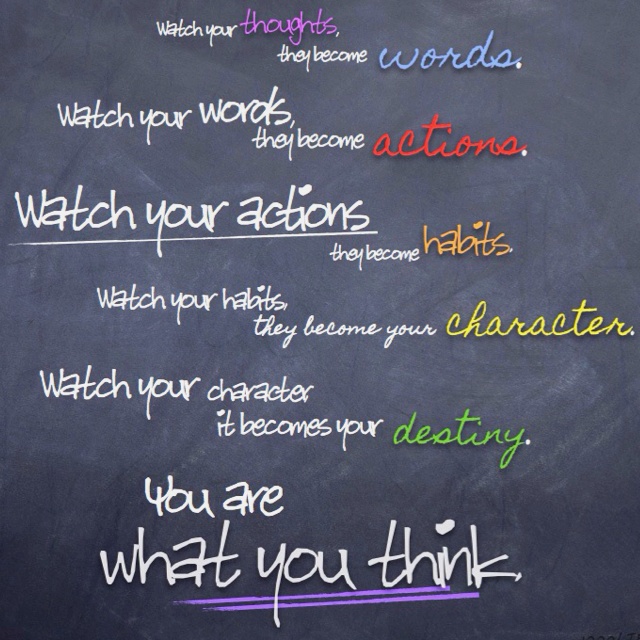 Watch your thoughts,
they become words.
Watch your words,
they become actions.
Watch your actions
they become habits.
Watch your habits,
they become your character.
Watch your character
it becomes your destiny.
You are
what you think.